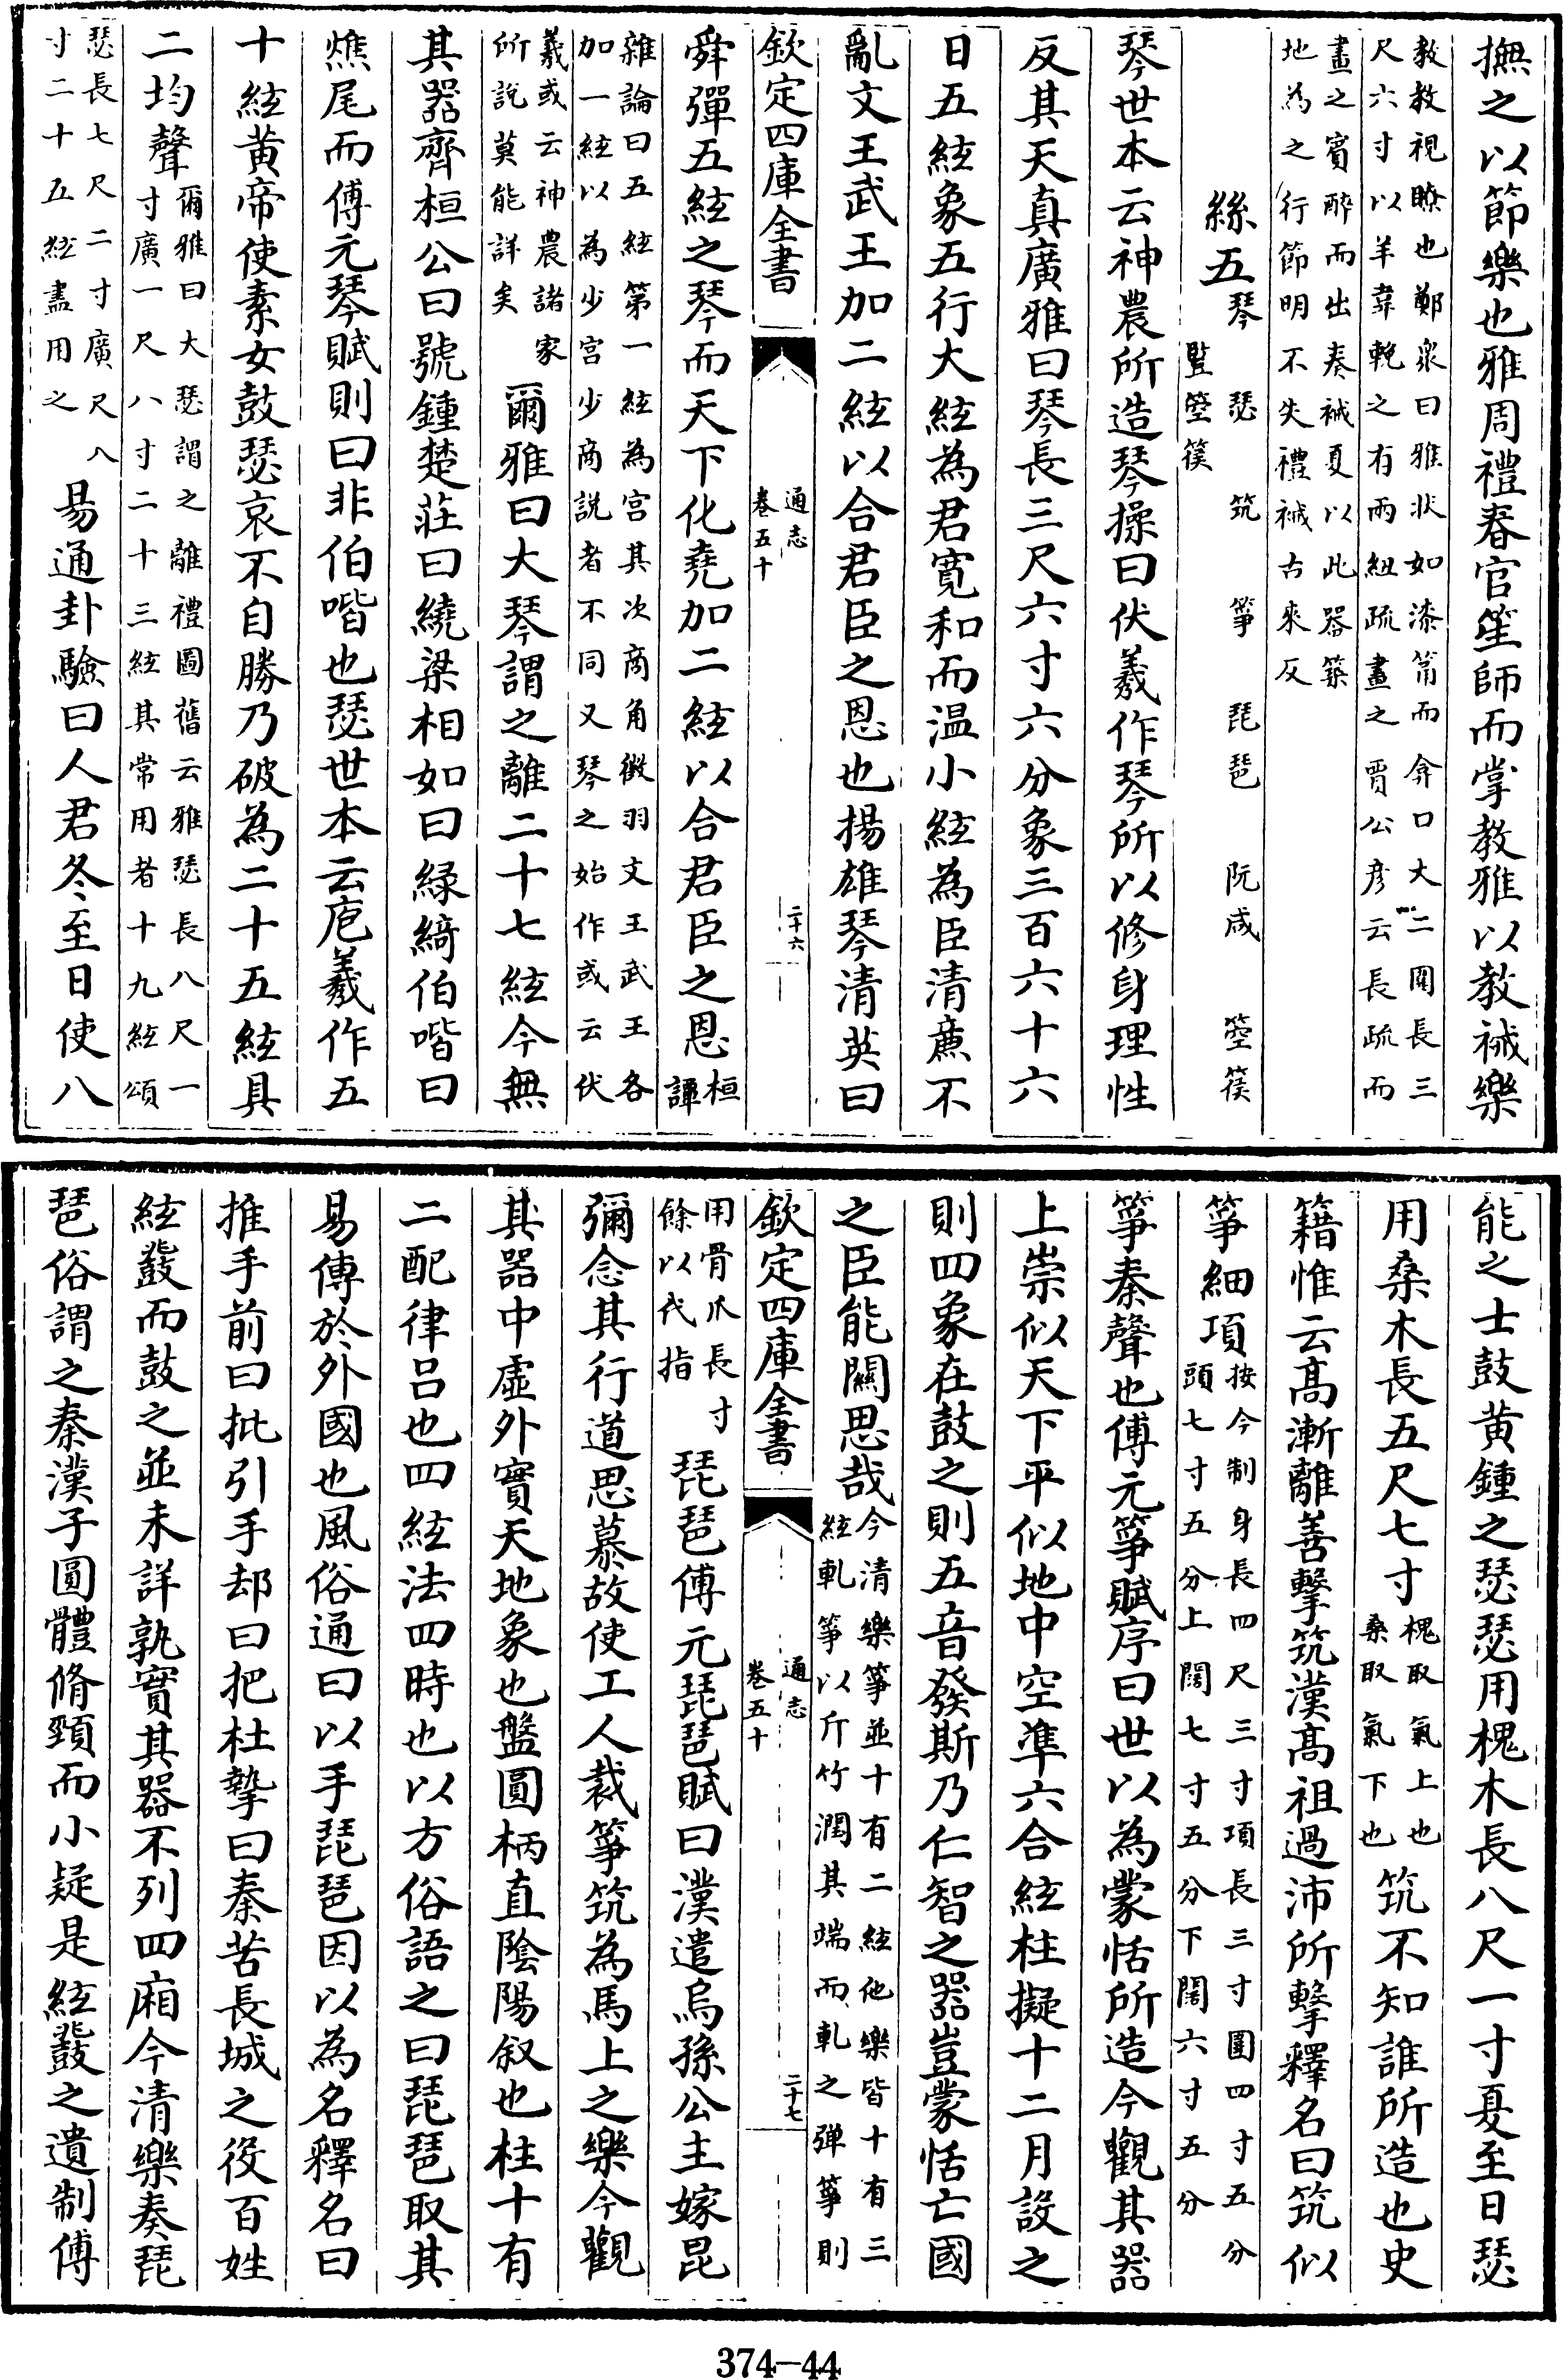 撫之以節樂也雅周禮春官笙師而掌教雅以教祴樂
教教視瞭也鄭衆曰雅狀如漆筩而弇口大二圍長三
尺六寸以羊韋鞔之有兩紐疏畫之賈公彦云長疏而
畫之賓醉而出奏祴夏以此器築
地為之行節明不失禮祴古來反
絲五琴 瑟 筑 箏 琵琶 阮咸 箜篌
豎箜篌
琴世本云神農所造琴操曰伏羲作琴所以修身理性
反其天真廣雅曰琴長三尺六寸六分象三百六十六
日五絃象五行大絃為君寛和而温小絃為臣清亷不
亂文王武王加二絃以合君臣之恩也揚雄琴清英曰
欽定四庫全書
通志
卷五十
二十六
舜彈五絃之琴而天下化堯加二絃以合君臣之恩桓譚
雜論曰五絃第一絃為宫其次商角徵羽文王武王各
加一絃以為少宫少商説者不同又琴之始作或云伏
羲或云神農諸家
所說莫能詳矣
爾雅曰大琴謂之離二十七絃今無
其器齊桓公曰號鍾楚莊曰繞梁相如曰緑綺伯喈曰
燋尾而傅元琴賦則曰非伯喈也瑟世本云庖羲作五
十絃黄帝使素女鼓瑟哀不自勝乃破為二十五絃具
二均聲
爾雅曰大瑟謂之離禮圖舊云雅瑟長八尺一
寸廣一尺八寸二十三絃其常用者十九絃頌
瑟長七尺二寸廣尺八
寸二十五絃盡用之
易通卦驗曰人君冬至日使八
能之士鼓黄鍾之瑟瑟用槐木長八尺一寸夏至日瑟
用桑木長五尺七寸
槐取氣上也
桑取氣下也
筑不知誰所造也史
籍惟云髙漸離善擊筑漢髙祖過沛所擊釋名曰筑似
箏細項
按今制身長四尺三寸項長三寸圍四寸五分
頭七寸五分上闊七寸五分下闊六寸五分
箏秦聲也傅元箏賦序曰世以為蒙恬所造今觀其器
上崇似天下平似地中空準六合絃柱擬十二月設之
則四象在鼓之則五音發斯乃仁智之器豈蒙恬亡國
之臣能關思哉
今清樂箏並十有二絃他樂皆十有三
絃軋箏以片竹潤其端而軋之弹箏則
欽定四庫全書
通志
卷五十
二十七
用骨爪長寸
餘以代指
琵琶傅元琵琶賦曰漢遣烏孫公主嫁昆
彌念其行道思慕故使工人裁箏筑為馬上之樂今觀
其器中虚外實天地象也盤圓柄直陰陽叙也柱十有
二配律吕也四絃法四時也以方俗語之曰琵琶取其
易傳於外國也風俗通曰以手琵琶因以為名釋名曰
推手前曰批引手却曰把杜摯曰秦苦長城之役百姓
絃鼗而鼓之並未詳孰實其器不列四廂今清樂奏琵
琶俗謂之秦漢子圓體脩頸而小疑是絃鼗之遺制傅
374-44